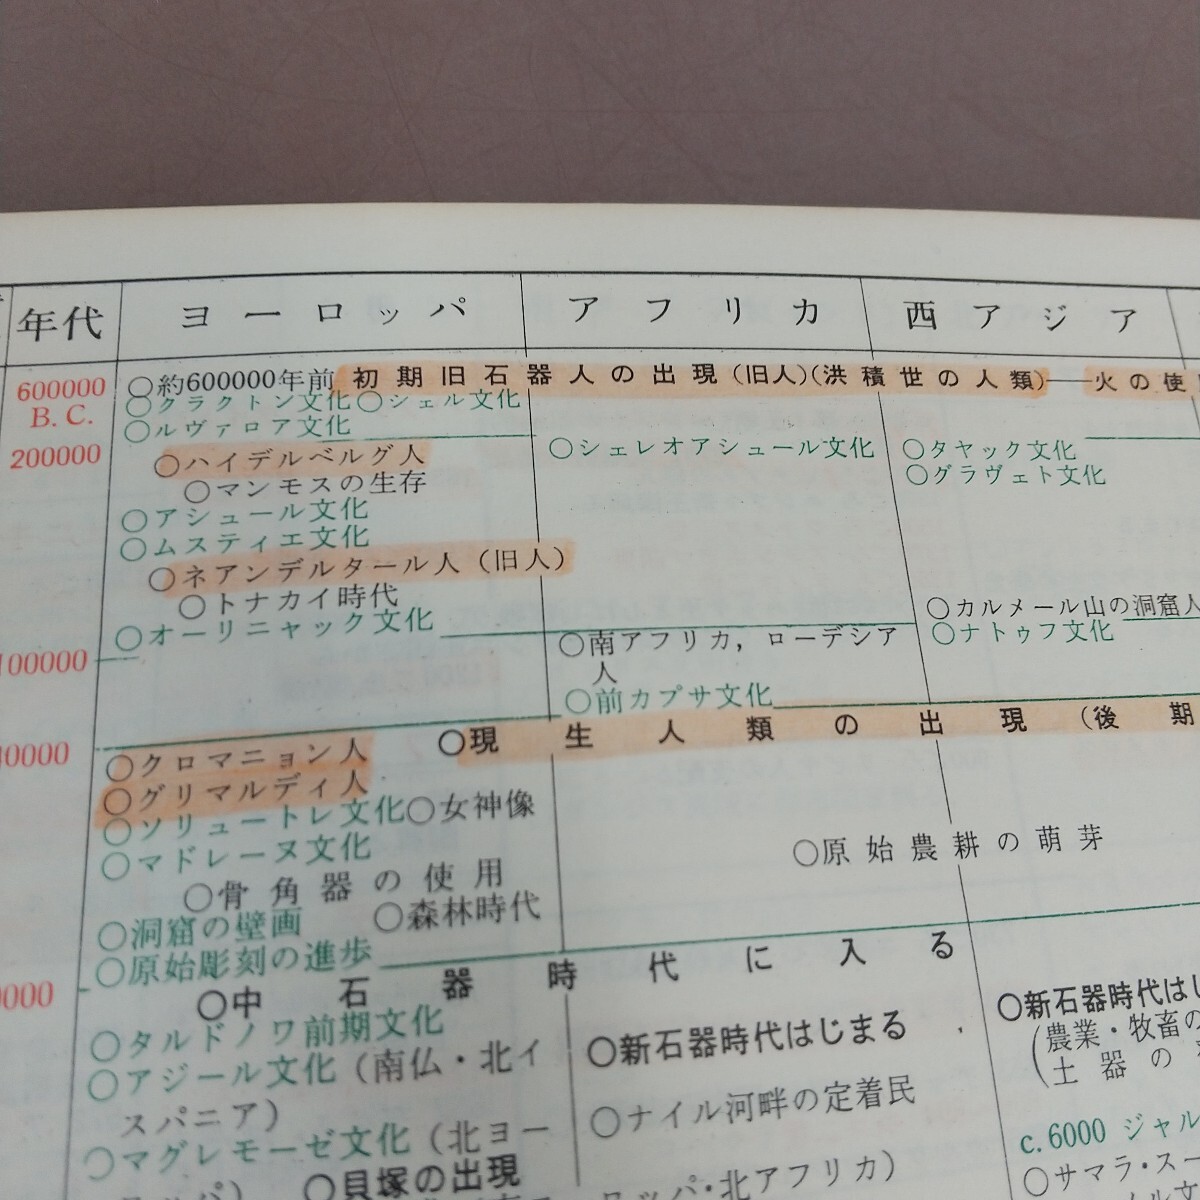 年代
ヨーロッパ
アフリカ
西アジア
600000
B.C.
○約600000年前 初期旧石器人の出現(旧人)(洪積世の人類)——火の使
○クラクトン文化○シェル文化
○ルヴァロア文化
200000
○ハイデルベルグ人
○マンモスの生存
○アシュール文化
○ムスティエ文化
○ネアンデルタール人(旧人)
○トナカイ時代
○オーリニャック文化
○シェレオアシュール文化
○タヤック文化
○グラヴェト文化
○カルメール山の洞窟人
○ナトゥフ文化
100000
○南アフリカ，ローデシア
人
○前カプサ文化
○現生人類の出現(後期
○クロマニョン人
○グリマルディ人
○ソリュートレ文化○女神像
○マドレーヌ文化
○骨角器の使用
○洞窟の壁画
○森林時代
○原始彫刻の進歩
○原始農耕の萌芽
○中石器時代に入る
○タルドノワ前期文化
○アジール文化(南仏・北イ
スパニア)
○マグレモーゼ文化(北ヨー
ロッパ)
○貝塚の出現
○新石器時代はじまる
○ナイル河畔の定着民
ロッパ・北アフリカ)
○新石器時代はじ
(農業・牧畜の
土器の
c.6000 ジャル
○サマラ・スー